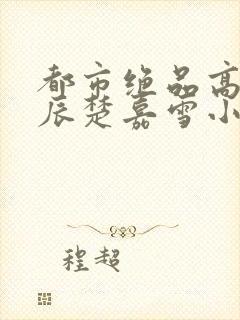 都市绝品高
辰楚嘉雪小
程超